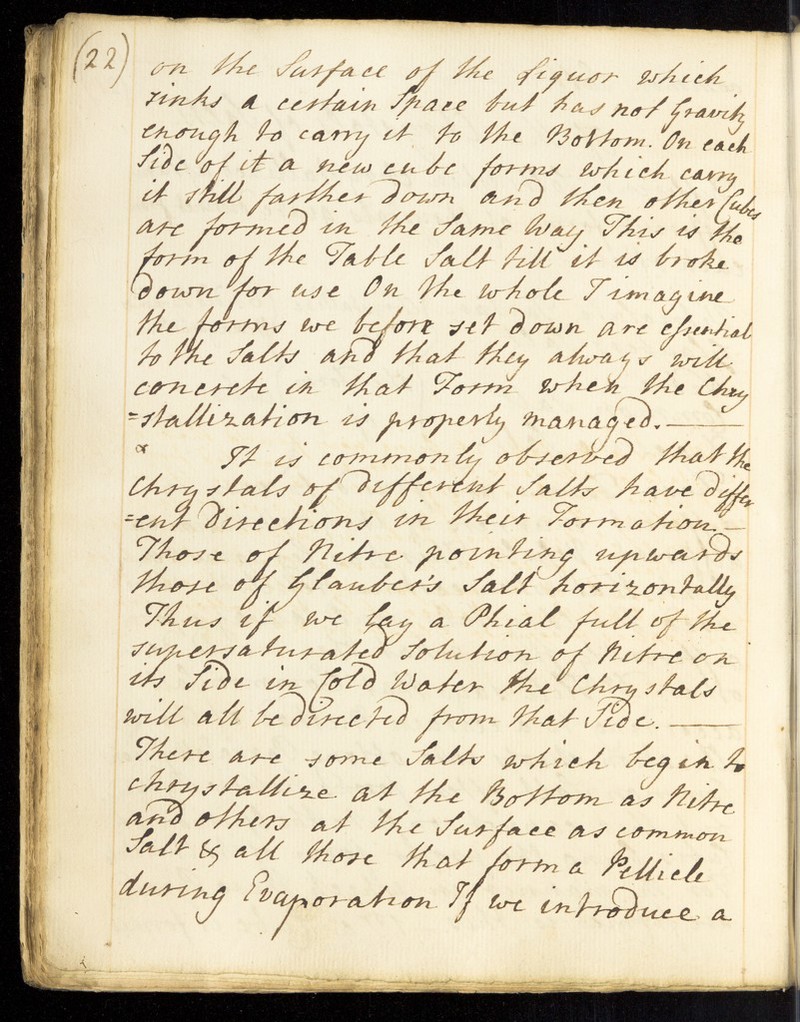 (22)
on the Surface of the Liquor which
sinks a certain Space but has not Gravity
enough to carry it to the Bottom. On each
Side of it a new cube forms which carry
it still farther down and then other Cubes
are formed in the Same Way This is the
form of the Table Salt till it is broke
down for use On the whole I imagine
the forms we before set down are essential
to the Salts and that they always will
concrete in that Form when the Chry
=stallization is properly managed.—
It is commonly observed that the
Chrystals of different Salts have differ
=ent Directions in their Formation.—
Those of Nitre pointing upwards
those of Glauber's Salt horizontally
Thus if we lay a Phial full of the
supersaturated Solution of Nitre on
its Side in Cold Water the Chrystals
will all be directed from that Side.—
There are some Salts which begin to
chrystallize at the Bottom as Nitre
and others at the Surface as common
Salt & all those that form a Pellicle
during Evaporation If we introduce a